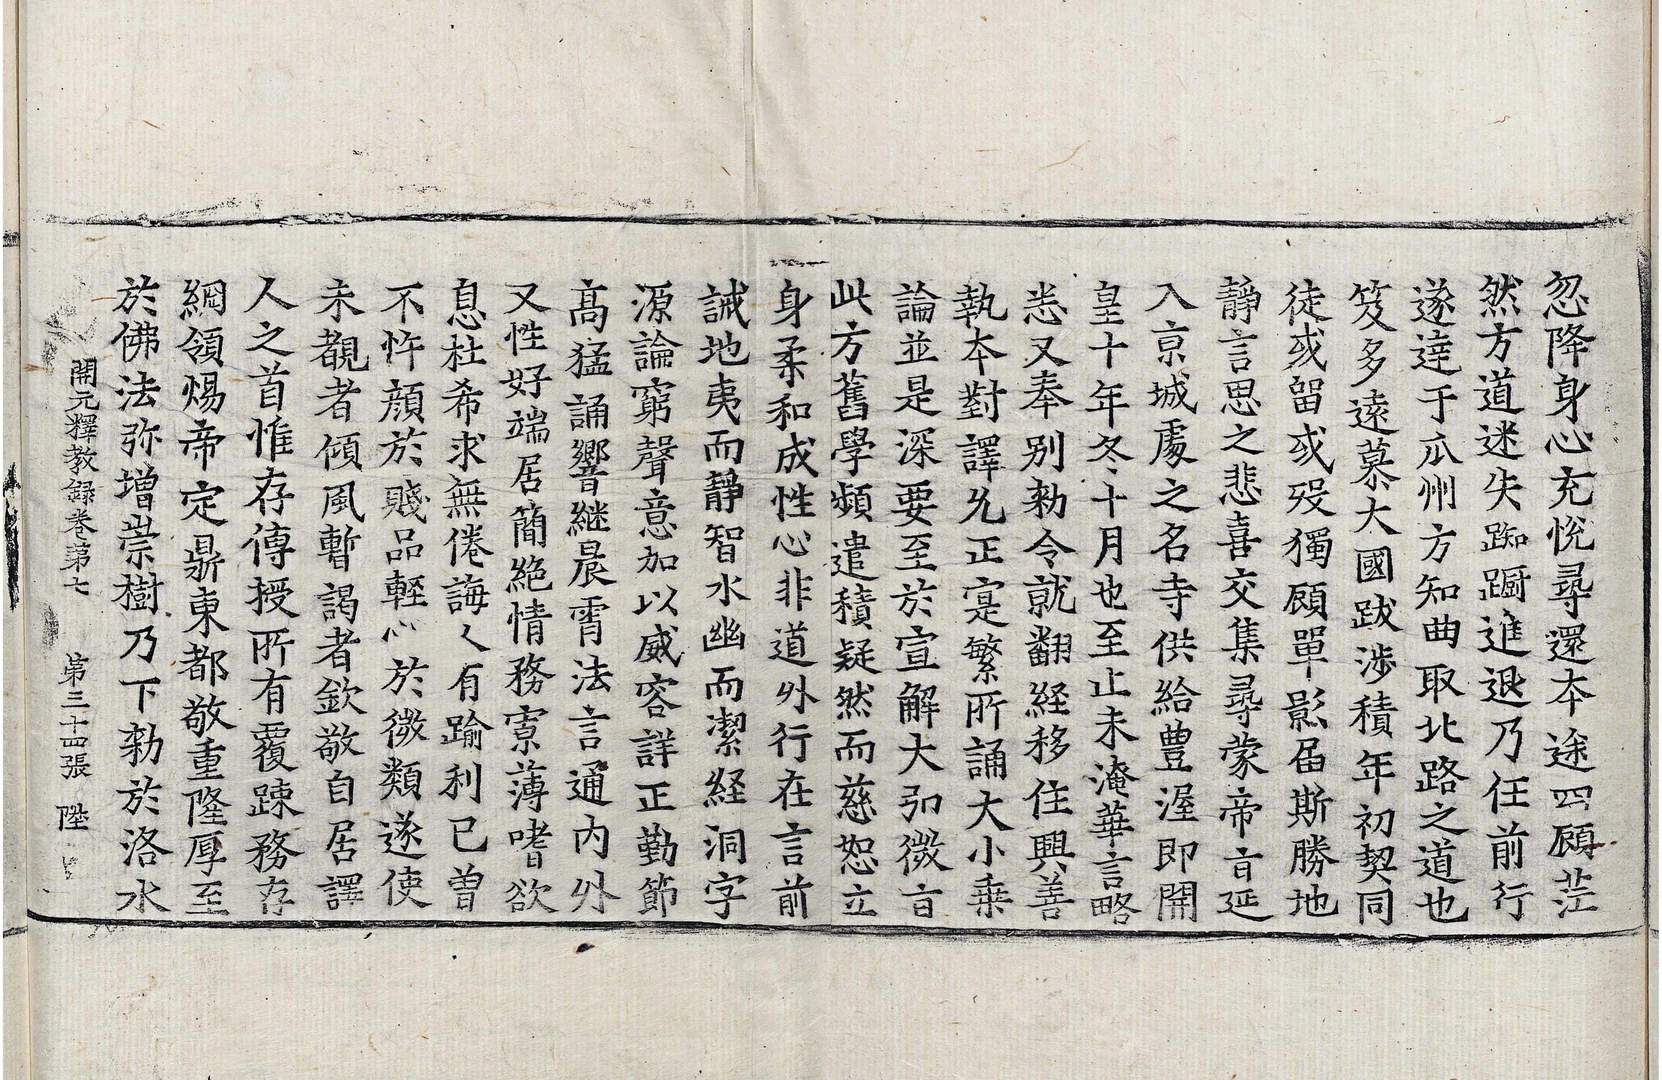 忽降身心充恱尋還本途四顧茫
然方道迷失踟蹰進退乃任前行
遂達于瓜州方知曲取北路之道也
笈多遠慕大國跋涉積年初契同
徒或留或殁獨顧單影届斯勝地
静言思之悲喜交集尋蒙帝㫖延
入京城處之名寺供給豊渥即開
皇十年冬十月也至止未淹華言略
悉又奉别勑令就翻経移住興善
執本對譯允正寔繁所誦大小乗
論並是深要至於宣解大弘微㫖
此方舊學頻遣積疑然而慈恕立
身柔和成性心非道外行在言前
誡地夷而静智水幽而潔経洞字
源論窮聲意加以威容詳正勤節
高猛誦響継晨霄法言通内外
又性好端居簡絶情務寡薄嗜欲
息杜希求無倦誨人有踰利已曽
不忤顔於賤品輕心於微類遂使
未覩者傾風暫謁者欽敬自居譯
人之首惟存傳授所有覆踈務存
綱領煬帝定鼎東都敬重隆厚至
於佛法弥増崇樹乃下勑於洛水
開元釋教録卷第七 第三十四張 陛